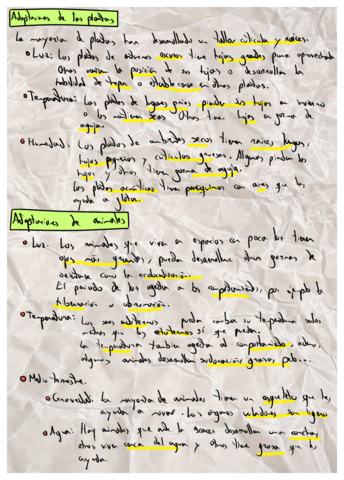 Adaptaciones de las plantas
La mayoría de plantas han desarrollado un tallo, cutícula y raíces.
Luz: Las plantas de entornos oscuros tienen hojas grandes para aprovecharla
Otras varían la posición de sus hojas o desarrollan la
habilidad de trepar o establecerse en otras plantas.
Temperatura: Las plantas de lugares fríos pierden las hojas en invierno
o las mantienen secas. Otras tienen hojas en forma de
aguja.
Humedad: Las plantas de ambientes secos tienen raíces largas,
hojas pequeñas y cutículas gruesas. Algunas pierden las
hojas y otras tienen forma de aguja.
Las plantas acuáticas tienen con aire que les
ayuda a flotar.
Adaptaciones de animales
Luz: Los animales que viven en espacios con poca luz tienen
ojos más grandes, pueden desarrollar otras formas de
como la ecolocalización.
El periodo de luz afecta a los comportamientos, por ejemplo la
hibernación o
Temperatura: Los seres pueden cambiar su temperatura
mientras que los sí que pueden.
La temperatura también afecta al comportamiento
Algunos animales desarrollan grasa, pelo...
Medio terrestre:
Gravedad: La mayoría de animales tienen un esqueleto que les
ayuda a mover. Los órganos voladores son ligeros
Agua: Hay animales que ante la escasez desarrollan una
otros viven cerca del agua y otros tiene grasa que les
ayuda.